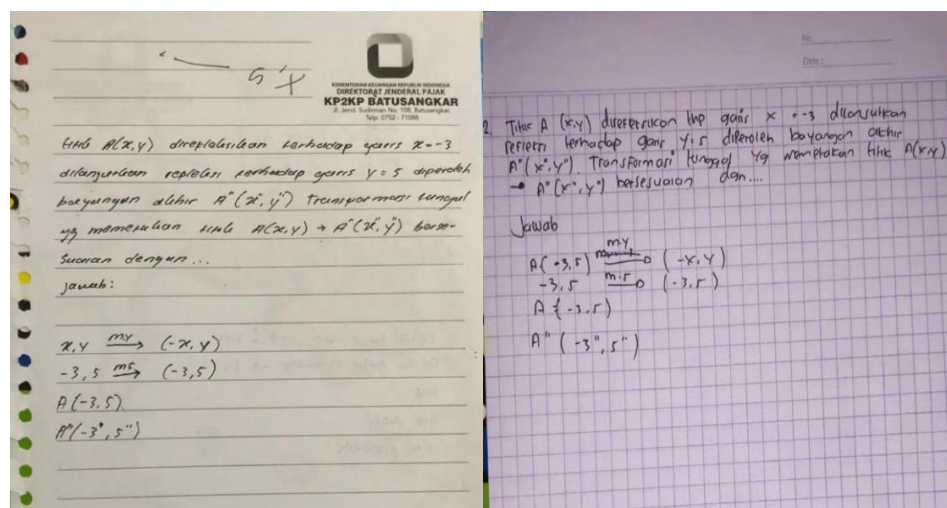 KEMENTERIAN KEUANGAN REPUBLIK INDONESIA
DIREKTORAT JENDERAL PAJAK
KP2KP BATUSANGKAR
Jl. Jend. Sudirman No. 108, Batusangkar,
Telp. 0752 - 71088
titik A(x,y) direfleksikan terhadap garis x=-3
dilanjutkan refleksi terhadap garis y = 5 diperoleh
bayangan akhir A"(x",y") Transformasi tunggal
yg memetakan titik A(x,y) → A"(x",y") berse-
suaian dengan...
jawab:
x,y my→ (-x,y)
-3,5 m5→ (-3,5)
A(-3,5)
A"(-3",5")
No.
Date:
2. Titik A (x,y) direfleksikan thp garis x = -3 dilanjutkan
refleksi terhadap garis y=5 diperoleh bayangan akhir
A"(x",y"). Transformasi tunggal yg memetakan titik A(x,y)
→ A"(x",y") bersesuaian dgn....
Jawab
A(-3,5) m.y→ (-x,y)
-3,5 m.5→ (-3,5)
A (-3,5)
A" (-3",5")